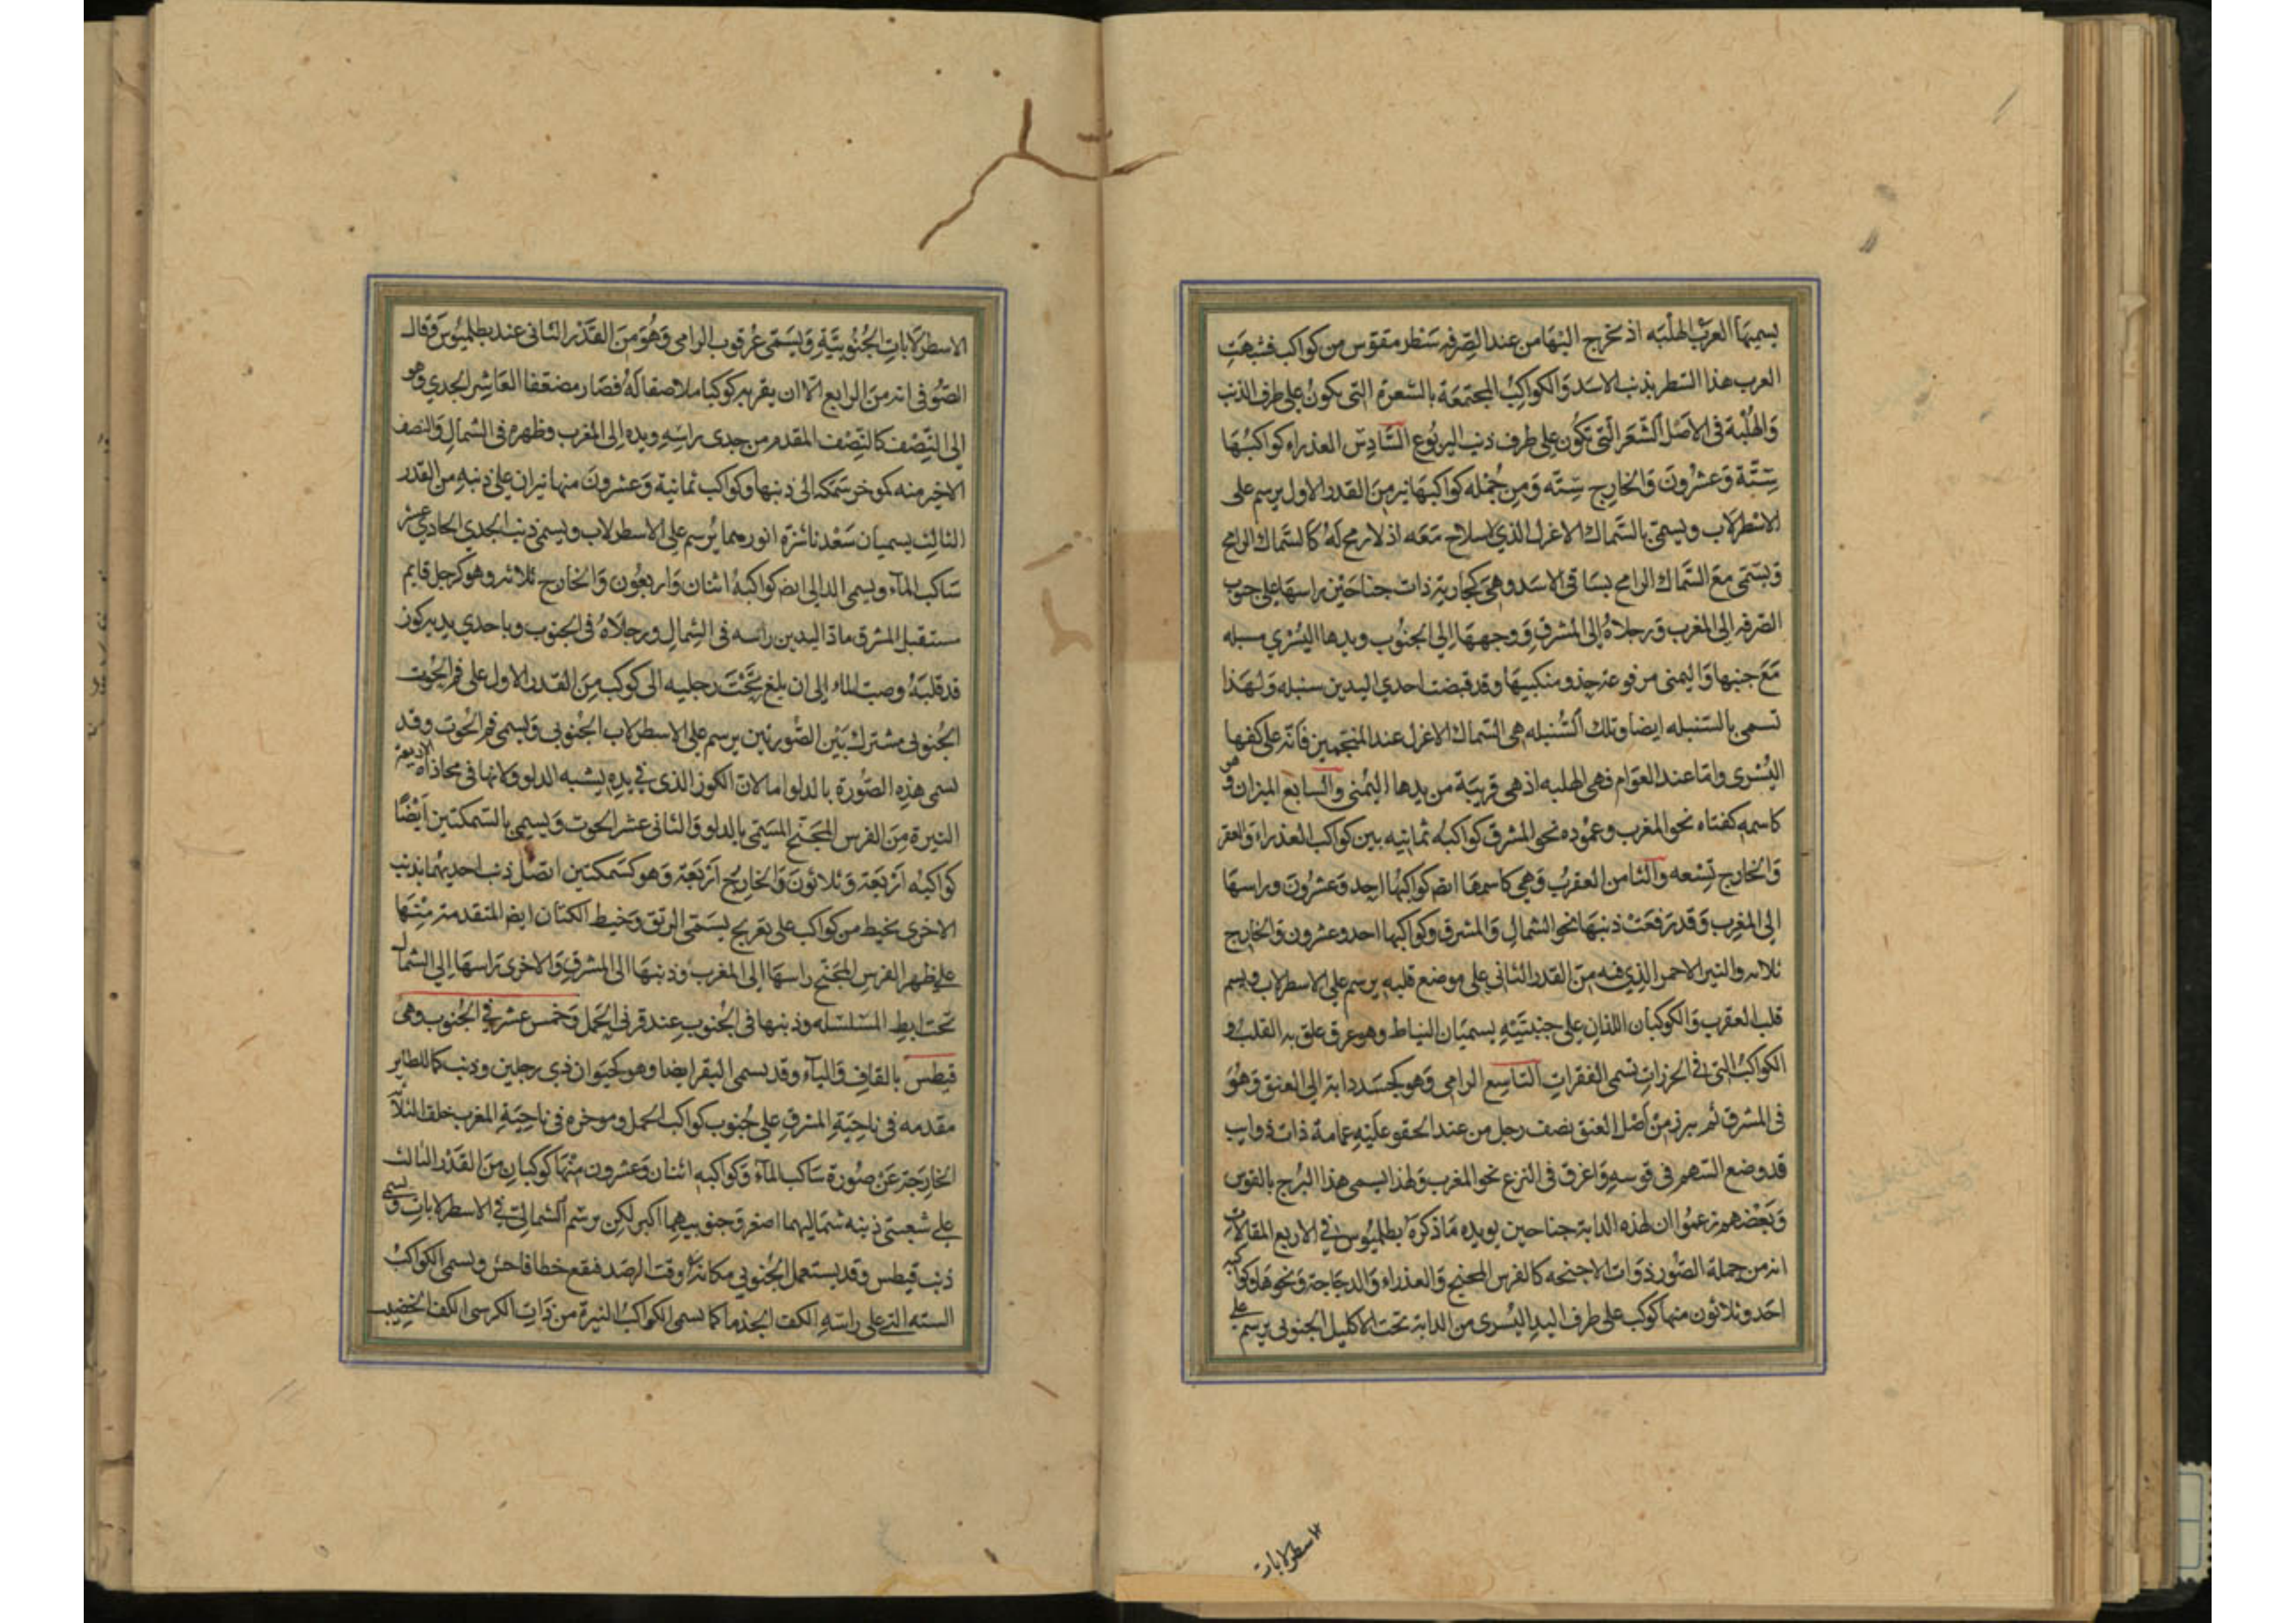 يسميها العرب الهلبه اذ تخرج اليها من عند الصرفه سطر مقوس من كواكب فشبهت
العرب هذا السطر بذنب الاسد والكواكب المجتمعة بالشعرة التى يكون على طرف الذنب
والهلبة فى الاصل الشعر التى تكون على طرف ذنب اليربوع السادس العذراء كواكبها
ستة وعشرون والخارج ستة ومن جمله كواكبها نير من القدر الاول يرسم على
الاسطرلاب ويسمى بالسماك الاعزل الذى لاسلاح معه اذ لا رمح له كالسماك الرامح
ويسمى مع السماك الرامح بساقى الاسد وهى كجارية ذات جناحين راسها على جنوب
الصرفه الى المغرب ورجلاه الى المشرق ووجهها الى الجنوب ويدها اليسرى مسبله
مع جنبها واليمنى مرفوعة حذو منكبيها وقد قبضت احدى اليدين سنبله ولهذا
تسمى بالسنبله ايضا وتلك السنبله هى السماك الاعزل عند المنجمين فانه على كفها
اليسرى واما عند العوام فهى الهلبه اذ هى قريبة من يدها اليمنى والسابع الميزان وهو
كاسمه كفتاه نحو المغرب وعموده نحو المشرق كواكبه ثمانيه بين كواكب العذراء والعقر
والخارج تسعه والثامن العقرب وهى كاسمها ايض كواكبها احد وعشرون وراسها
الى المغرب وقد رفعت ذنبها نحو الشمال والمشرق وكواكبها احد وعشرون والخارج
ثلاثه والنير الاحمر الذى فيه من القدر الثانى على موضع قلبه يرسم على الاسطرلاب ويسم
قلب العقرب والكوكبان اللذان على جنبتيه يسميان النياط وهو عرق علق به القلب و
الكواكب التى فى الخرزات تسمى الفقرات التاسع الرامى وهو كجسد دابة الى العنق وهو
فى المشرق ثم يبرز من اصل العنق نصف رجل من عند الحقو عليه عمامة ذات ذوايب
قد وضع السهم فى قوسه واغرق فى النزع نحو المغرب ولهذا يسمى هذا البرج بالقوس
وبعضهم زعموا ان لهذه الدابة جناحين يويده ما ذكره بطلميوس فى الاربع المقالات
انه من جملة الصور ذوات الاجنحه كالفرس المجنح والعذراء والدجاجة ونحوها وكواكبه
احد وثلاثون منها كوكب على طرف اليد اليسرى من الدابة تحت الاكليل الجنوبى يرسم على
الاسطرلابات
الاسطرلابات الجنوبية ويسمى عرقوب الرامى وهو من القدر الثانى عند بطلميوس وقال
الصوفى انه من الرابع الا ان بقربه كوكبا ملاصقا له فصار مضعفا العاشر الجدي وهو
الى النصف كالنصف المقدم من جدى راسه ويده الى المغرب وظهره فى الشمال والنصف
الاخير منه كموخر سمكه الى ذنبها وكواكبه ثمانية وعشرون منها نيران على ذنبه من القدر
الثالث يسميان سعد ناشرة انورهما يرسم على الاسطرلاب ويسمى ذنب الجدي الحادي عشر
ساكب الماء ويسمى الدالى ايض كواكبه اثنان واربعون والخارج ثلاثه وهو كرجل قايم
مستقبل المشرق ماد اليدين راسه فى الشمال ورجلاه فى الجنوب وباحدي يديه كوز
قد قلبه وصب الماء الى ان بلغ تحت رجليه الى كوكب من القدر الاول على فم الحوت
الجنوبى مشترك بين الصورتين يرسم على الاسطرلاب الجنوبى ويسمى فم الحوت وقد
تسمى هذه الصورة بالدلو اما لان الكوز الذى فى يده يشبه الدلو ولانها فى محاذاة الاربعة
النيرة من الفرس المجنح المسمى بالدلو والثانى عشر الحوت ويسمى بالسمكتين ايضا
كواكبه اربعة وثلاثون والخارج اربعة وهو كسمكتين اتصل ذنب احديهما بذنب
الاخرى بخيط من كواكب على تعريج يسمى الرتق وخيط الكتان ايض المتقدمة منها
على ظهر الفرس المجنح راسها الى المغرب وذنبها الى المشرق والاخرى راسها الى الشمال
تحت ابط المسلسله وذنبها فى الجنوب عند قرنى الحمل وخمس عشر فى الجنوب وهى
قيطس بالقاف والياء وقد يسمى البقر ايضا وهو كحيوان ذى رجلين وذنب كالطاير
مقدمه فى ناحية المشرق على جنوب كواكب الحمل وموخره فى ناحية المغرب خلف الثلاثة
الخارجة عن صورة ساكب الماء وكواكبه اثنان وعشرون منها كوكبان من القدر الثالث
على شعبتى ذنبه شماليهما اصغر وجنوبيهما اكبر لكن يرسم الشمالى فى الاسطرلابات ويسمى
ذنب قيطس وقد يستعمل الجنوبى مكانه وقت الرصد فيقع خطا فاحش ويسمى الكواكب
السته التى على راسه الكف الجذما كما يسمى الكواكب النيرة من ذات الكرسى الكف الخضيب